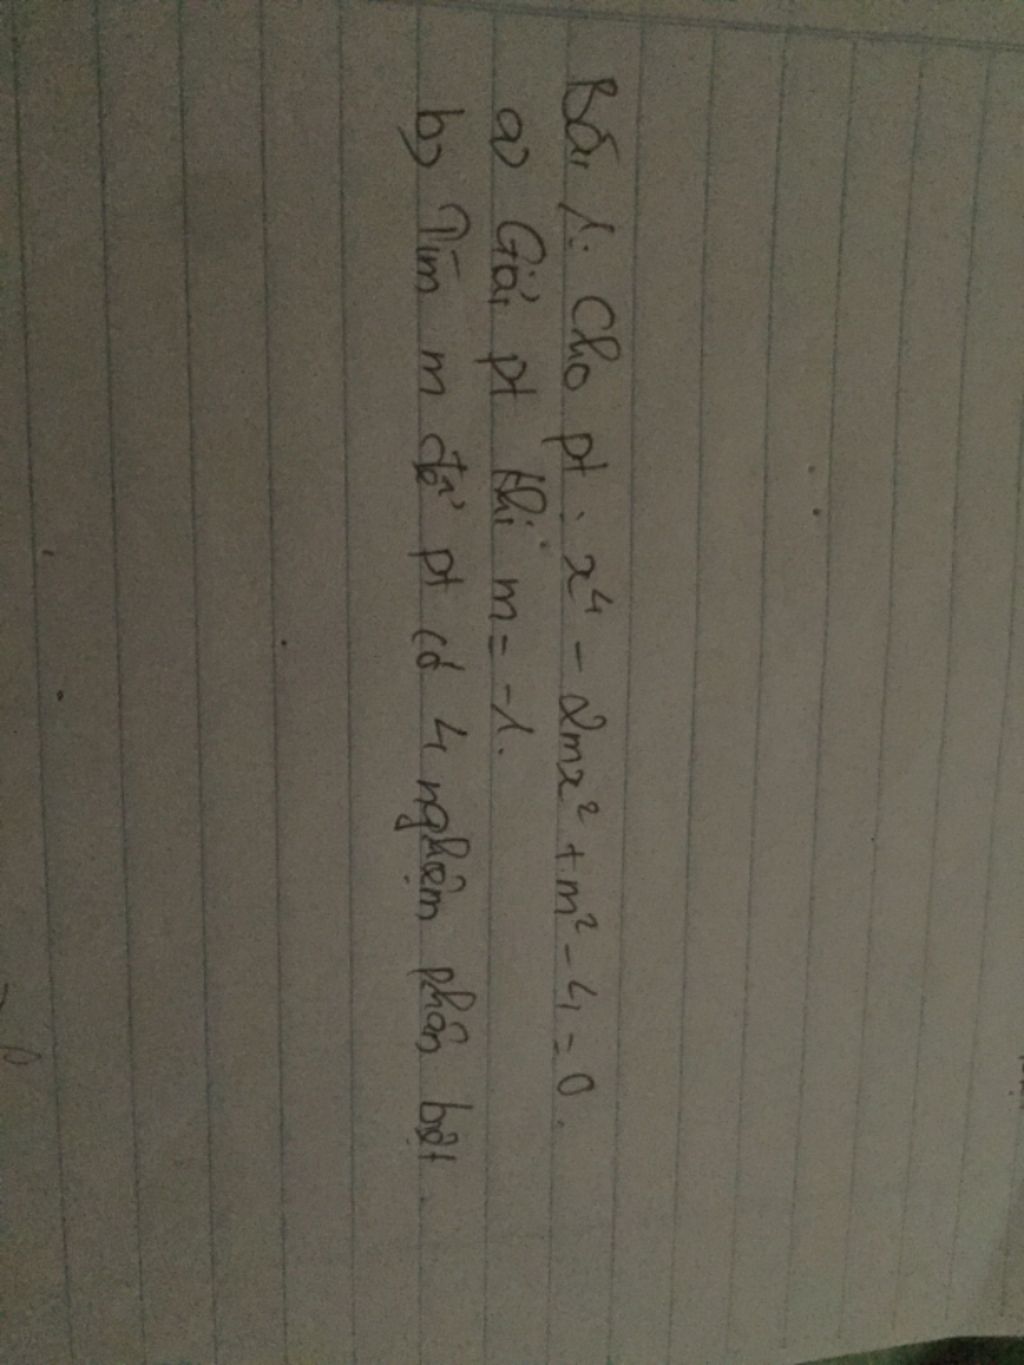 Bài 1: Cho pt : x⁴ - 2mx² + m² - 4 = 0.
a) Giải pt khi m = -1.
b) Tìm m để pt có 4 nghiệm phân biệt.